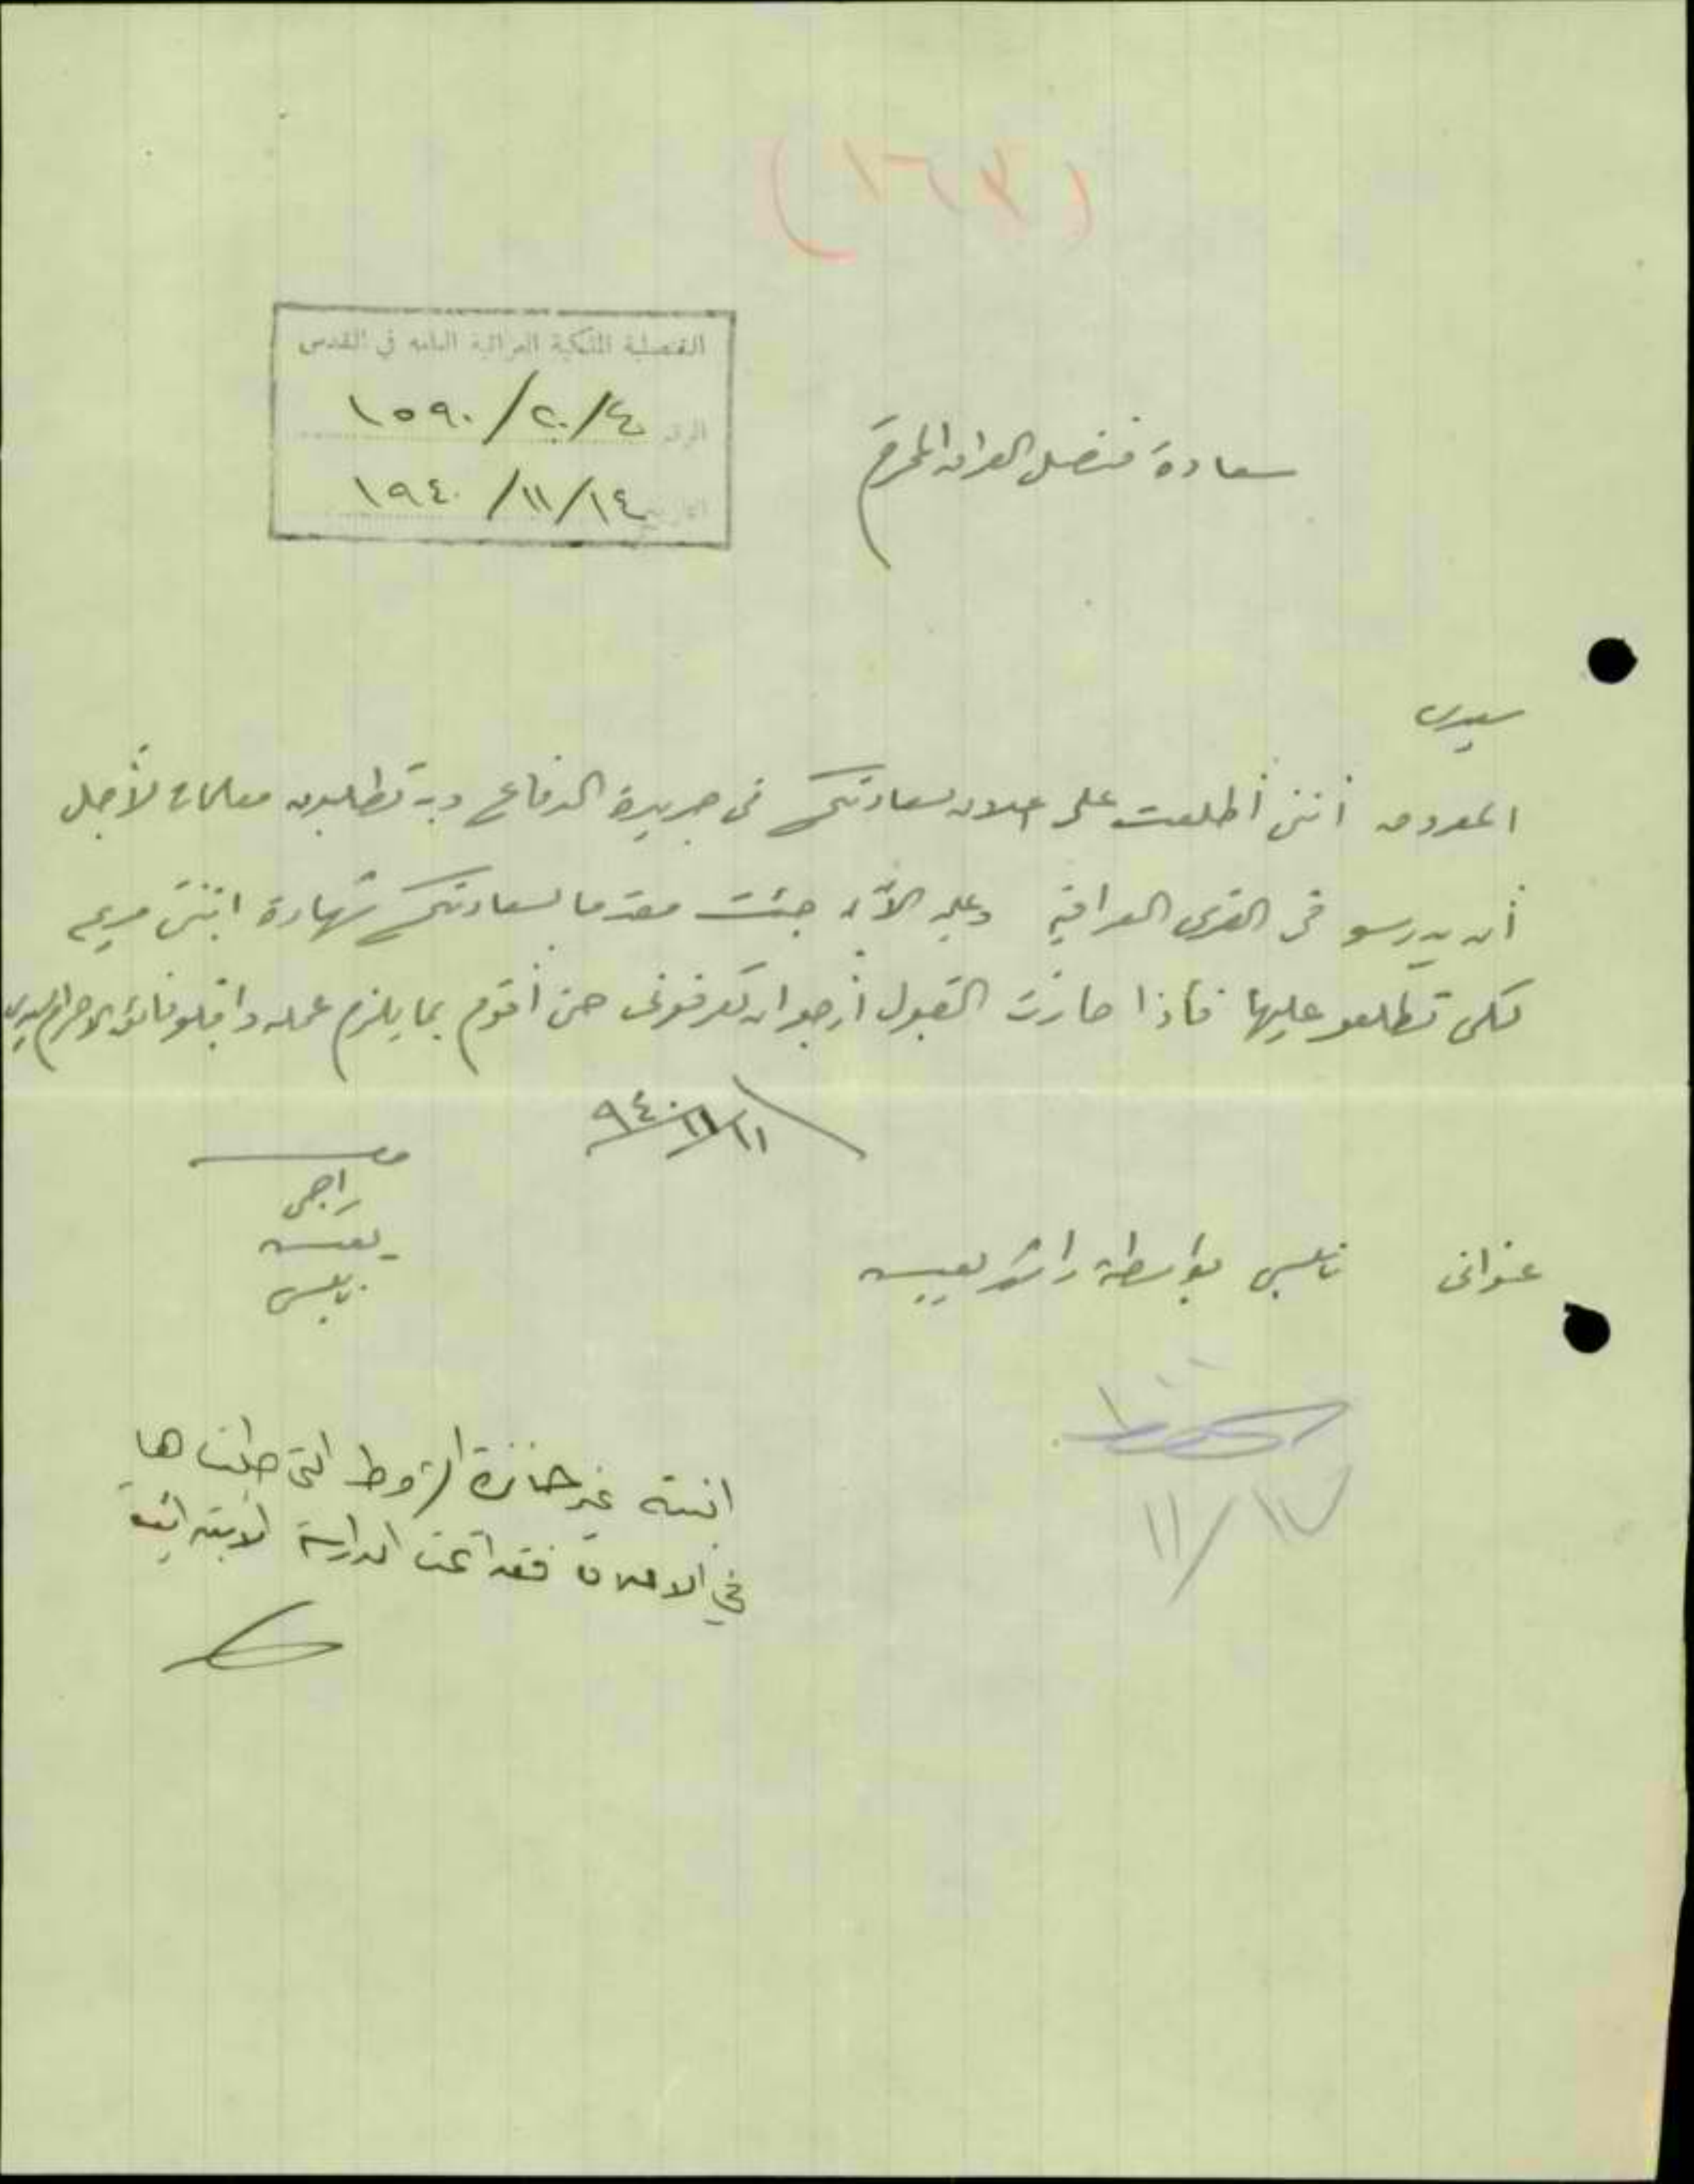 القنصلية الملكية العراقية العامة في القدس
الرقم ٤/٢٠/١٥٩٠
التاريخ ١٤/١١/١٩٤٠
سعادة قنصل العراق المحترم
سيدي
المعروض أنني أطلعت على اعلان لسعادتكم في جريدة الدفاع وبه تطلبون معلمات لأجل
أن يدرسو في القرى العراقية وعليه الآن جئت مقدما لسعادتكم شهادة ابنتي مريم
لكي تطلعو عليها فإذا حازت القبول أرجو ان تعرفوني حتى أقوم بما يلزم عمله واقبلو فائق الاحترام سيدي
١١/١١/٩٤٠
راجي
نابلس
عنواني نابلس بواسطة راشد
١٧/١١
ابنته غير حائزة الشروط التي طلبناها
في الاعلان فقد أتمت الدراسة الابتدائية